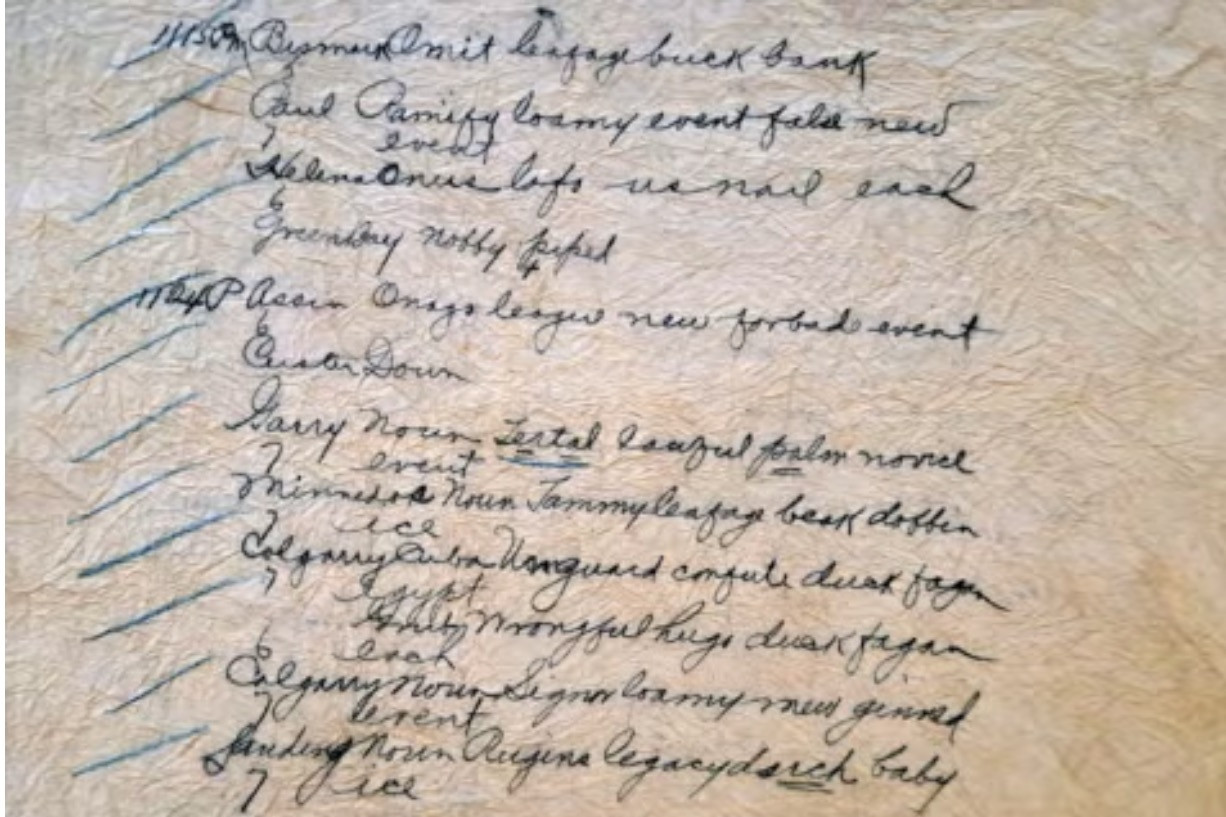 Bismark Omit leafage buck bank
Paul Ramify loamy event false new
event
Helena Onus lofo us nail each
Greenbay nobby piped
Assin Onago league new forbade event
Custer Down
Garry Noun Tertal lawful palm novice
event
Minnedos Noun Jammy leafage beak dobbin
ice
Calgarry Cuba Unguard confute duck fagan
Egypt
Wrongful hugo duck fagan
each
Calgarry Noun Signor loamy mew ginned
event
Landing Noun Rugins legacy duch baby
ice